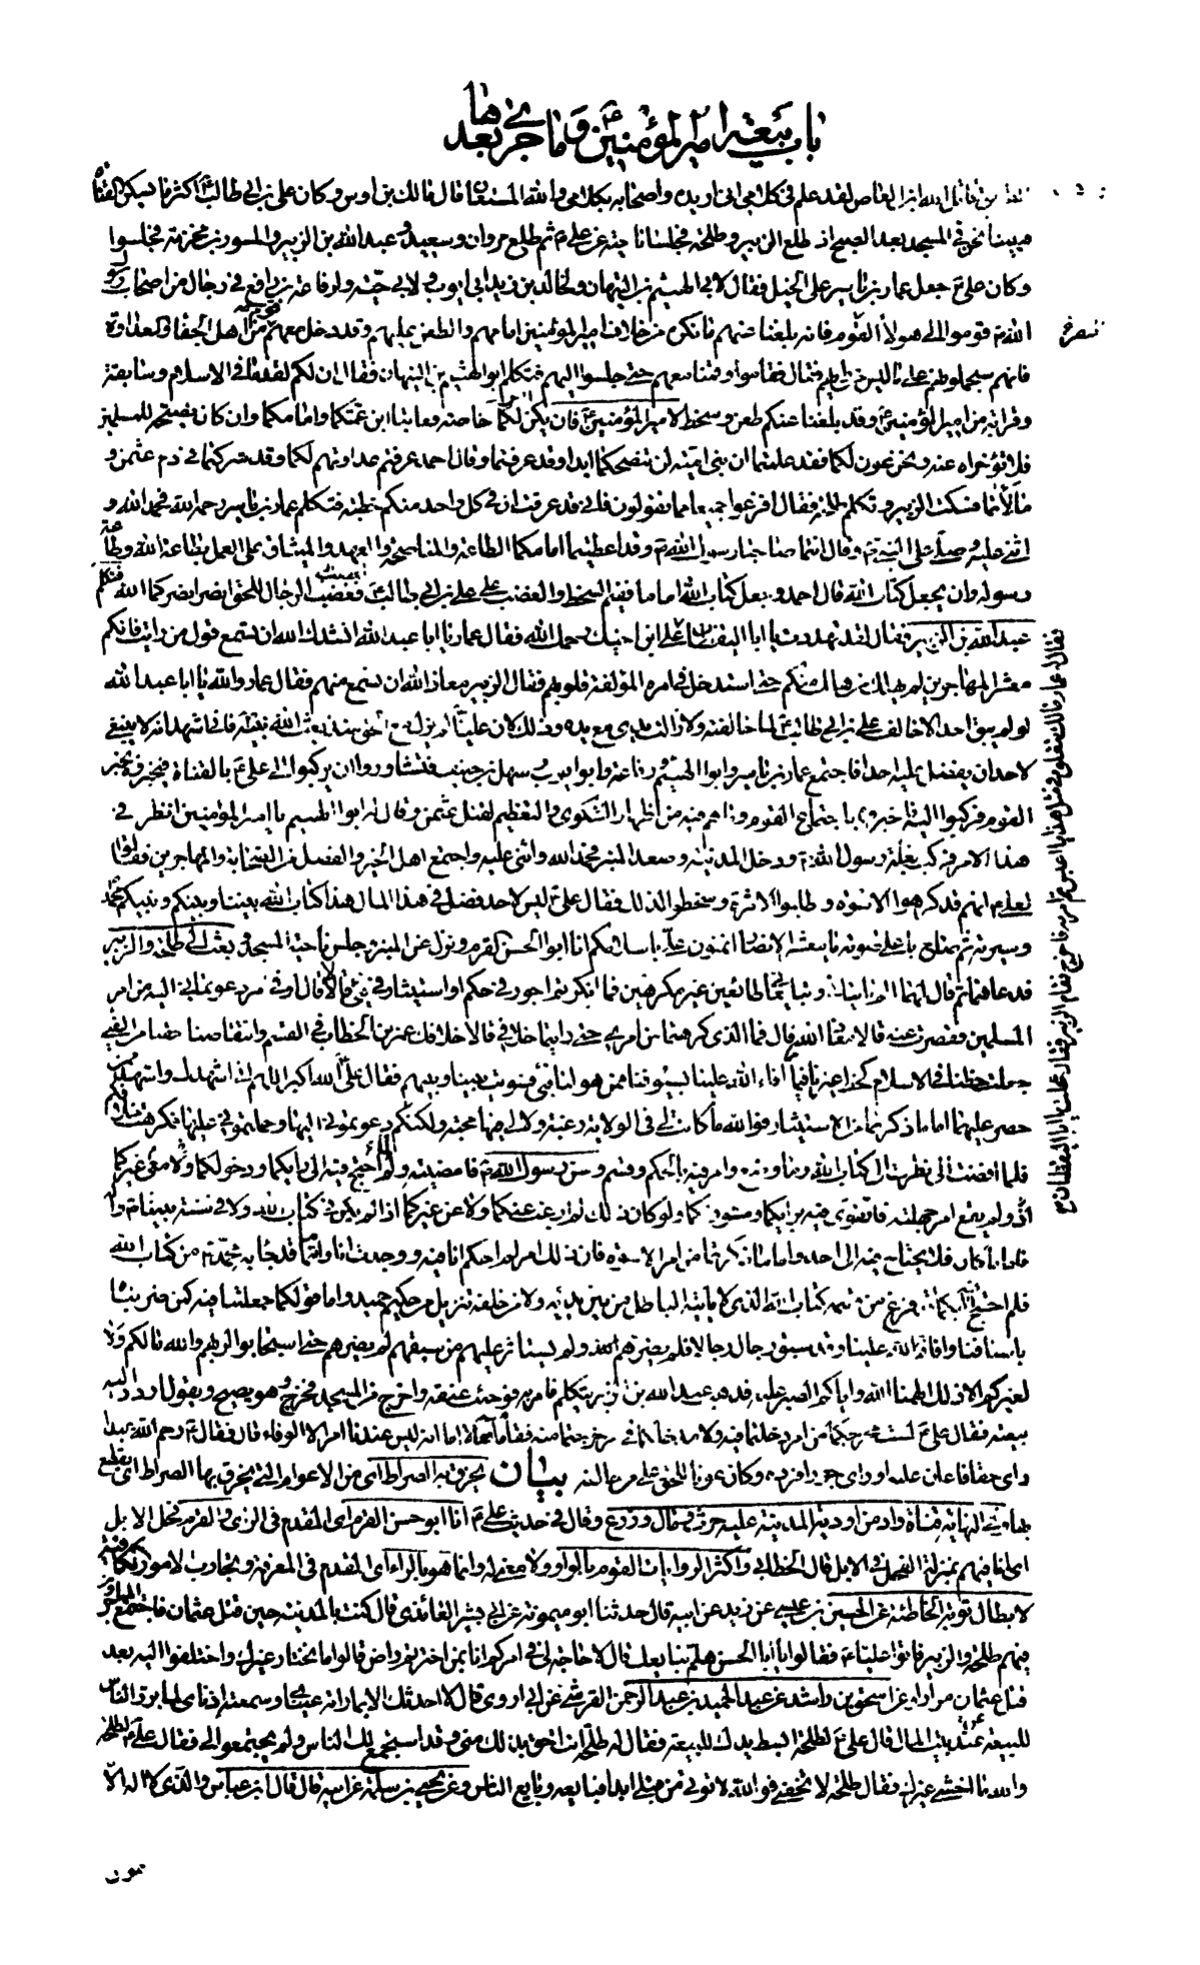 باب بيعة امير المؤمنين ع وما جرى بعدها
قاتل الله ابن العاص لقد علم في كلامي اني اريده واصحابه بكلامي والله المستعان قال مالك بن اوس وكان علي بن ابي طالب ع اكثر ما يسكن القناة
فبينا نحن في المسجد بعد الصبح اذ طلع الزبير وطلحة فجلسا ناحية عن علي ع ثم طلع مروان وسعيد وعبد الله بن الزبير والمسور بن مخرمة فجلسوا
وكان علي ع جعل عمار بن ياسر على الخيل فقال لابي الهيثم بن التيهان ولخالد بن زيد ابي ايوب ولابي حية ولرفاعة بن رافع في رجال من اصحاب رسول
الله ص قوموا الى هولاء القوم فانه بلغنا عنهم ما نكره من خلاف امير المؤمنين امامهم والطعن عليهم وقد دخل معهم قوم من اهل الجفاء والعداوة
فانهم سيحملونهم على ما ليس من رايهم فقال فقاموا وقمنا معهم حتى جلسوا اليهم فتكلم ابو الهيثم بن التيهان فقال ان لكم لقدما في الاسلام وسابقة
وقرابة من امير المؤمنين ع وقد بلغنا عنكم طعن وسخط لامير المؤمنين ع فان يكن امر لكما خاصة فعاتبا ابن عمتكما وامامكما وان كان نصيحة للمسلمين
فلا تؤخراه عنه ونحن عون لكما فقد علمتما ان بني امية لن تنصحكما ابدا وقد عرفتما وقال احمد عرفتم عداوتهم لكما وقد شركتما في دم عثمن و
مالاتما فسكت الزبير وتكلم طلحة فقال افرغوا جميعا مما تقولون فاني قد عرفت ان في كل واحد منكم خطبة فتكلم عمار بن ياسر رحمه الله فحمد الله و
اثنى عليه وصلى على النبي ص وقال انتما صاحبا رسول الله ص وقد اعطيتما امامكما الطاعة والمناصحة والعهد والميثاق على العمل بطاعة الله وطاعة
رسوله وان يجعل كتاب الله قال احمد وجعل كتاب الله اماما ففيم السخط والغضب على علي بن ابي طالب ع فغضب الرجال للحق انصرا نصركما الله فتكلم
عبد الله بن الزبير فقال لقد تهددت يا ابا اليقظان
معشر المهاجرين لم يهلك من هلك منكم حتى استدخل في امره المؤلفة قلوبهم فقال الزبير معاذ الله ان نسمع منهم فقال عمار والله يا ابا عبد الله
لو لم يبق احد الا خالف علي بن ابي طالب ع لما خالفته ولا زالت يدي مع يده وذلك لان عليا لم يزل مع الحق منذ بعث الله نبيه فاني اشهد انه لا ينبغي
لاحد ان يفضل عليه احدا فاجتمع عمار بن ياسر وابو الهيثم ورفاعة وابو ايوب وسهل بن حنيف فتشاوروا ان يركبوا الى علي ع بالقناة فيخبروه بخبر
القوم فركبوا اليه فاخبروه باجتماع القوم وما هم فيه من اظهار الشكوى والتعظيم لقتل عثمن وقال له ابو الهيثم يا امير المؤمنين انظر في
هذا الامر فركب بغلة رسول الله ص ودخل المدينة وصعد المنبر فحمد الله واثنى عليه واجتمع اهل الخير والفضل من الصحابة والمهاجرين فقالوا
لعلي ع انهم قد كرهوا الاسوة وطلبوا الاثرة وسخطوا لذلك فقال علي ع ليس لاحد فضل في هذا المال هذا كتاب الله بيننا وبينكم ونبيكم محمد
وسيرته ثم صاح باعلى صوته يا معشر الانصار اتمنون علي باسلامكم انا ابو الحسن القرم ونزل عن المنبر وجلس ناحية المسجد وبعث الى طلحة والزبير
فدعاهما ثم قال لهما الم تاتياني وتبايعاني طائعين غير مكرهين فما انكرتم اجور في حكم او استيثار في فيء قالا لا قال او في امر دعوتماني اليه من امر
المسلمين فقصرت عنه قالا معاذ الله قال فما الذي كرهتما من امري حتى رايتما خلافي قالا خلافك عمر بن الخطاب في القسم وانتقاصنا حقنا من الفيء
جعلت حظنا في الاسلام كحظ غيرنا فيما افاء الله علينا بسيوفنا ممن هو لنا فيء فسويت بيننا وبينهم فقال علي ع الله اكبر اللهم اني اشهدك واشهد من
حضر عليهما اما ما ذكرتما من الاستيثار فوالله ما كانت لي في الولاية رغبة ولا لي فيها محبة ولكنكم دعوتموني اليها وحملتموني عليها فكرهت خلافكم
فلما افضت الي نظرت الى كتاب الله وما وضع وامر فيه بالحكم وقسم وسن رسول الله ص فامضيته ولم احتج فيه الى رايكما ودخولكما ولا معي غيركما
ولم يقع امر جهلته فاتقوى فيه برايكما ومشورتكما ولو كان ذلك لم ارغب عنكما ولا عن غيركما اذا لم يكن في كتاب الله ولا في سنة نبينا ص
فاما ما كان فلا يحتاج فيه الى احد واما ما ذكرتما من امر الاسوة فان ذلك امر لم احكم انا فيه ووجدت انا وانتما قد جاء به محمد ص من كتاب الله
فلم احتج فيه اليكما قد فرغ من قسمه كتاب الله الذي لا ياتيه الباطل من بين يديه ولا من خلفه تنزيل من حكيم حميد واما قولكما جعلتنا فيه كمن ضربناه
باسيافنا وافاء الله علينا وقد سبق رجال رجالا فلم يضرهم ولم يستاثر عليهم من سبقهم لم يضرهم حتى استجابوا لربهم والله ما لكم ولا
لغيركم الا ذلك الهمنا الله واياكم الصبر عليه فذهب عبد الله بن الزبير يتكلم فامر به فوجئت عنقه واخرج من المسجد فخرج وهو يصيح ويقول اردد اليه
بيعته فقال علي ع لست مخرجكما من امر دخلتما فيه ولا مدخلكما في امر خرجتما منه فقاما عنه وقالا اما انه ليس عندنا امر الا الوفاء قال فقال ع رحم الله عبدا
راى حقا فاعان عليه او راى جورا فرده وكان عونا للحق على من خالفه بيان يخرق به الصراط اي من الاعوام التي يخرق بها الصراط اي يقطع
بها وفي النهاية قناة واد من اودية المدينة عليه حرث ومال وزرع وقال في حديث علي ع انا ابو حسن القرم اي المقدم في الراي والقرم فحل الابل
اي انا فيهم بمنزلة الفحل في الابل قال الخطابي واكثر الروايات القوم بالواو ولا معنى له وانما هو بالراء اي المقدم في المعرفة وتجارب الامور
لابطال توبة الخاطئة عن الحسين بن عيسى عن زيد عن ابيه قال حدثنا ابو ميمونة عن ابي بشير العائذي قال كنت بالمدينة حين قتل عثمان فاجتمع المهاجرون
فيهم طلحة والزبير فاتوا عليا ع فقالوا يا ابا الحسن هلم نبايعك قال لا حاجة لي في امركم انا بمن اخترتم راض قالوا ما نختار غيرك واختلفوا اليه بعد
قتل عثمان مرارا وعن اسحق بن راشد عن عبد الحميد بن عبد الرحمن القرشي عن ابن ابزى قال الا احدثك الا بما راته عيناي وسمعته اذناي لما برز الناس
للبيعة عند بيت المال قال علي ع لطلحة ابسط يدك للبيعة فقال له طلحة انت احق بذلك مني وقد استجمع لك الناس ولم يجتمعوا لي فقال علي ع لطلحة
والله ما اخشى غيرك فقال طلحة لا تخشني فوالله لا توتى من قبلي ابدا فبايعه وبايع الناس وعن يحيى بن سلمة عن ابيه قال قال ابن عباس والذي لا اله الا